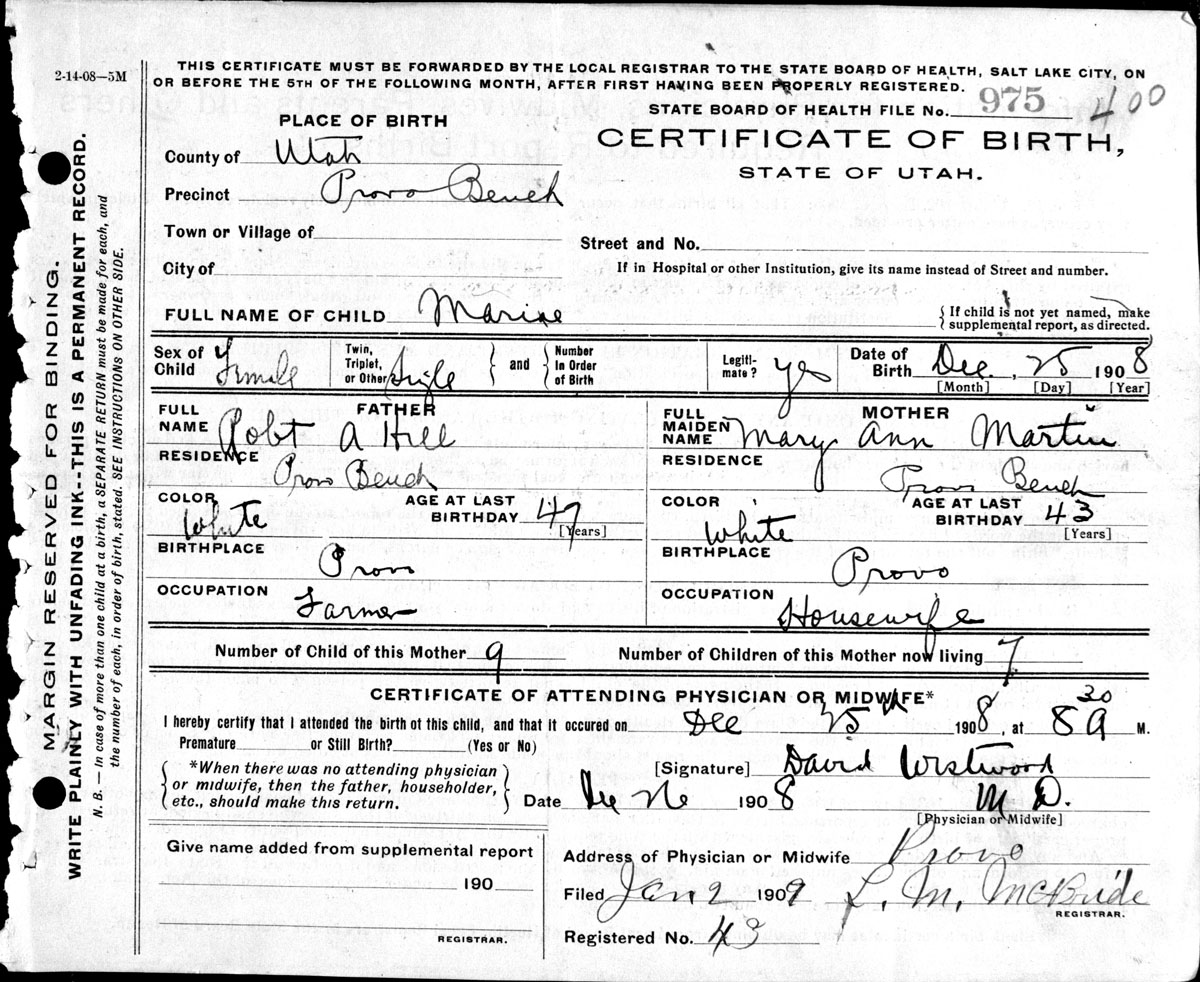 2-14-08—5M
THIS CERTIFICATE MUST BE FORWARDED BY THE LOCAL REGISTRAR TO THE STATE BOARD OF HEALTH, SALT LAKE CITY, ON
OR BEFORE THE 5TH OF THE FOLLOWING MONTH, AFTER FIRST HAVING BEEN PROPERLY REGISTERED.
STATE BOARD OF HEALTH FILE No. 975 400
PLACE OF BIRTH
CERTIFICATE OF BIRTH,
STATE OF UTAH.
County of Utah
Precinct Provo Bench
Town or Village of
Street and No.
City of
If in Hospital or other Institution, give its name instead of Street and number.
FULL NAME OF CHILD Marine
{ If child is not yet named, make
supplemental report, as directed.
Sex of Child Female
Twin, Triplet, or Other Single } and { Number In Order of Birth
Legiti-mate? yes
Date of Birth Dec, 25 1908
[Month] [Day] [Year]
FATHER
FULL NAME Robt A Hill
RESIDENCE
Provo Bench
COLOR White
AGE AT LAST BIRTHDAY 47
[Years]
BIRTHPLACE
Provo
OCCUPATION
Farmer
MOTHER
FULL MAIDEN NAME Mary Ann Martin
RESIDENCE
Provo Bench
COLOR White
AGE AT LAST BIRTHDAY 43
[Years]
BIRTHPLACE
Provo
OCCUPATION
Housewife
Number of Child of this Mother 9
Number of Children of this Mother now living 7
CERTIFICATE OF ATTENDING PHYSICIAN OR MIDWIFE*
I hereby certify that I attended the birth of this child, and that it occured on Dec 25th 1908, at 8 30 a M.
Premature or Still Birth? (Yes or No)
{ *When there was no attending physician
or midwife, then the father, householder,
etc., should make this return. }
[Signature] David Westwood
Date Dec 1908 M D.
[Physician or Midwife]
Give name added from supplemental report
190
REGISTRAR.
Address of Physician or Midwife Provo
Filed Jan 2 1909 L. M. McBride
REGISTRAR.
Registered No. 43
MARGIN RESERVED FOR BINDING.
WRITE PLAINLY WITH UNFADING INK--THIS IS A PERMANENT RECORD.
N. B.— In case of more than one child at a birth, a SEPARATE RETURN must be made for each, and
the number of each, in order of birth, stated. SEE INSTRUCTIONS ON OTHER SIDE.